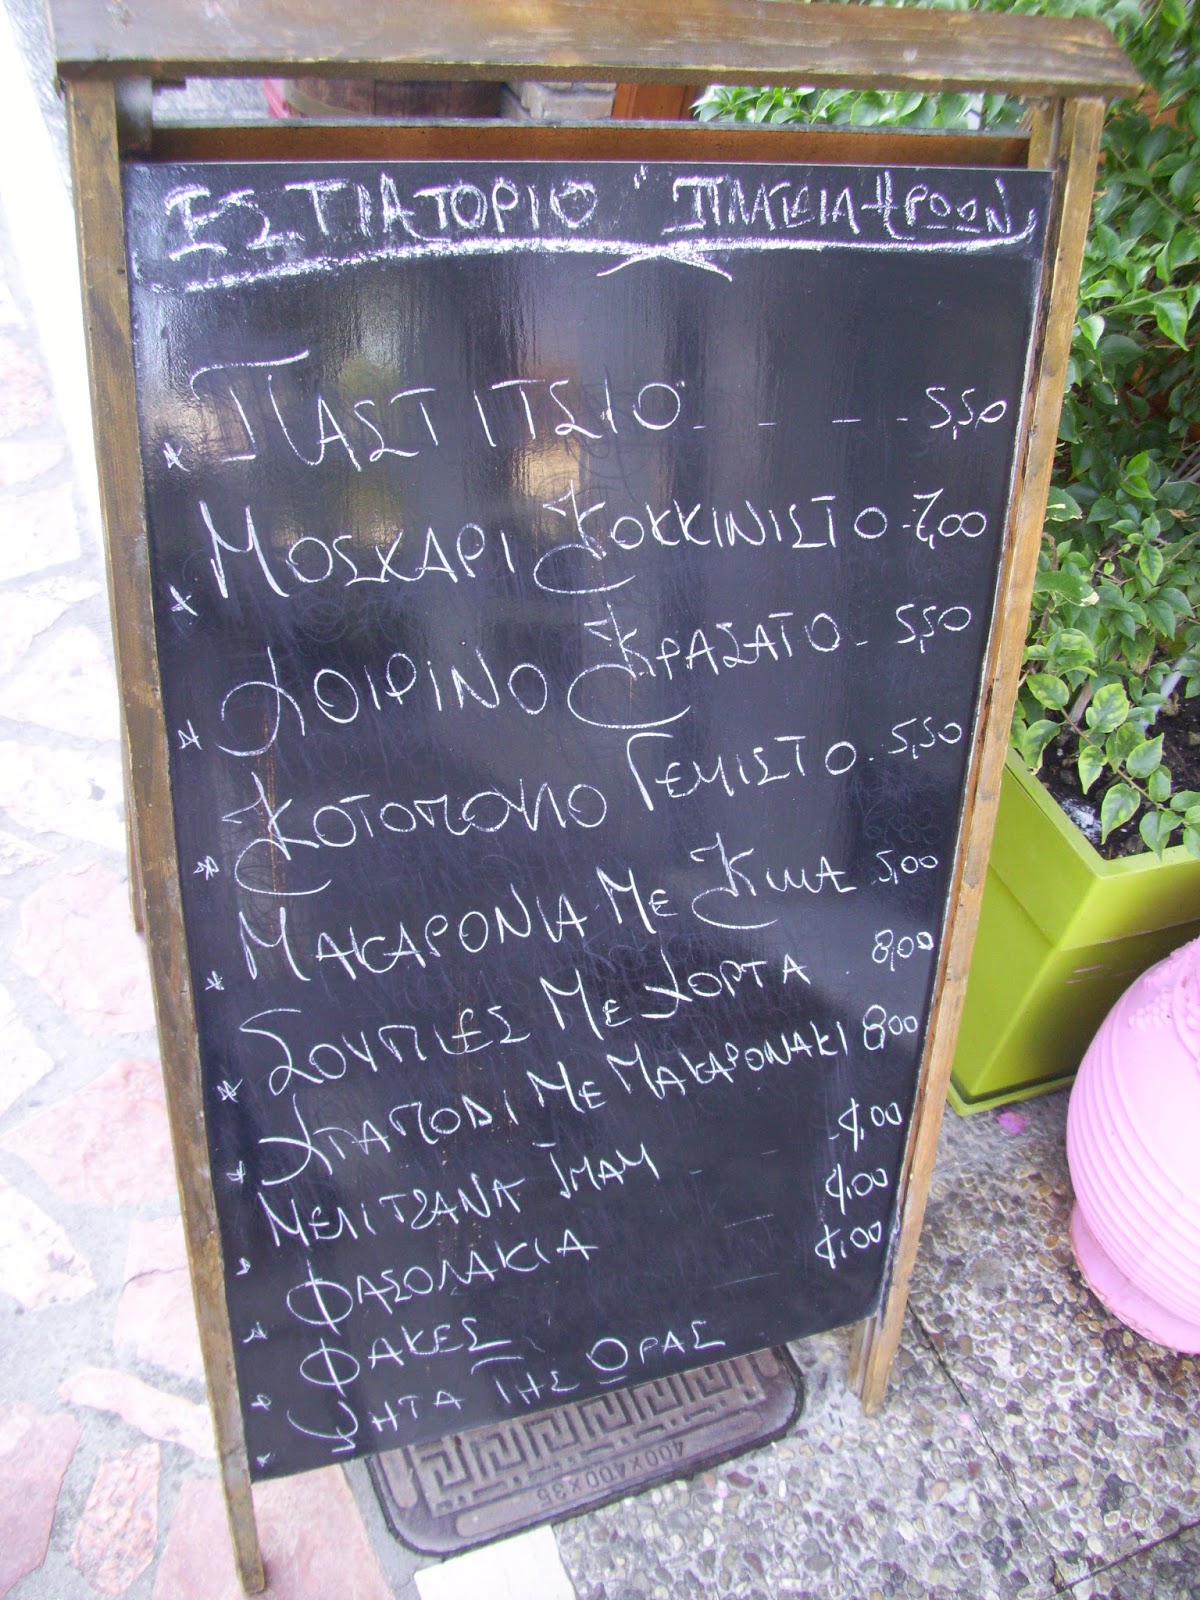 ΕΣΤΙΑΤΟΡΙΟ "ΠΛΑΤΕΙΑ ΗΡΩΩΝ"
* ΠΑΣΤΙΤΣΙΟ - - - - 5,50
* ΜΟΣΧΑΡΙ ΚΟΚΚΙΝΙΣΤΟ - 7,00
* ΧΟΙΡΙΝΟ ΚΡΑΣΑΤΟ - 5,50
* ΚΟΤΟΠΟΥΛΟ ΓΕΜΙΣΤΟ - 5,50
* ΜΑΚΑΡΟΝΙΑ ΜΕ ΚΙΜΑ 5,00
* ΣΟΥΠΙΕΣ ΜΕ ΧΟΡΤΑ . 8,00
* ΧΤΑΠΟΔΙ ΜΕ ΜΑΚΑΡΟΝΑΚΙ 8,00
* ΜΕΛΙΤΖΑΝΑ ΙΜΑΜ - - - 4,00
* ΦΑΣΟΛΑΚΙΑ 4,00
* ΦΑΚΕΣ 4,00
* ΨΗΤΑ ΤΗΣ ΩΡΑΣ
400x400x35